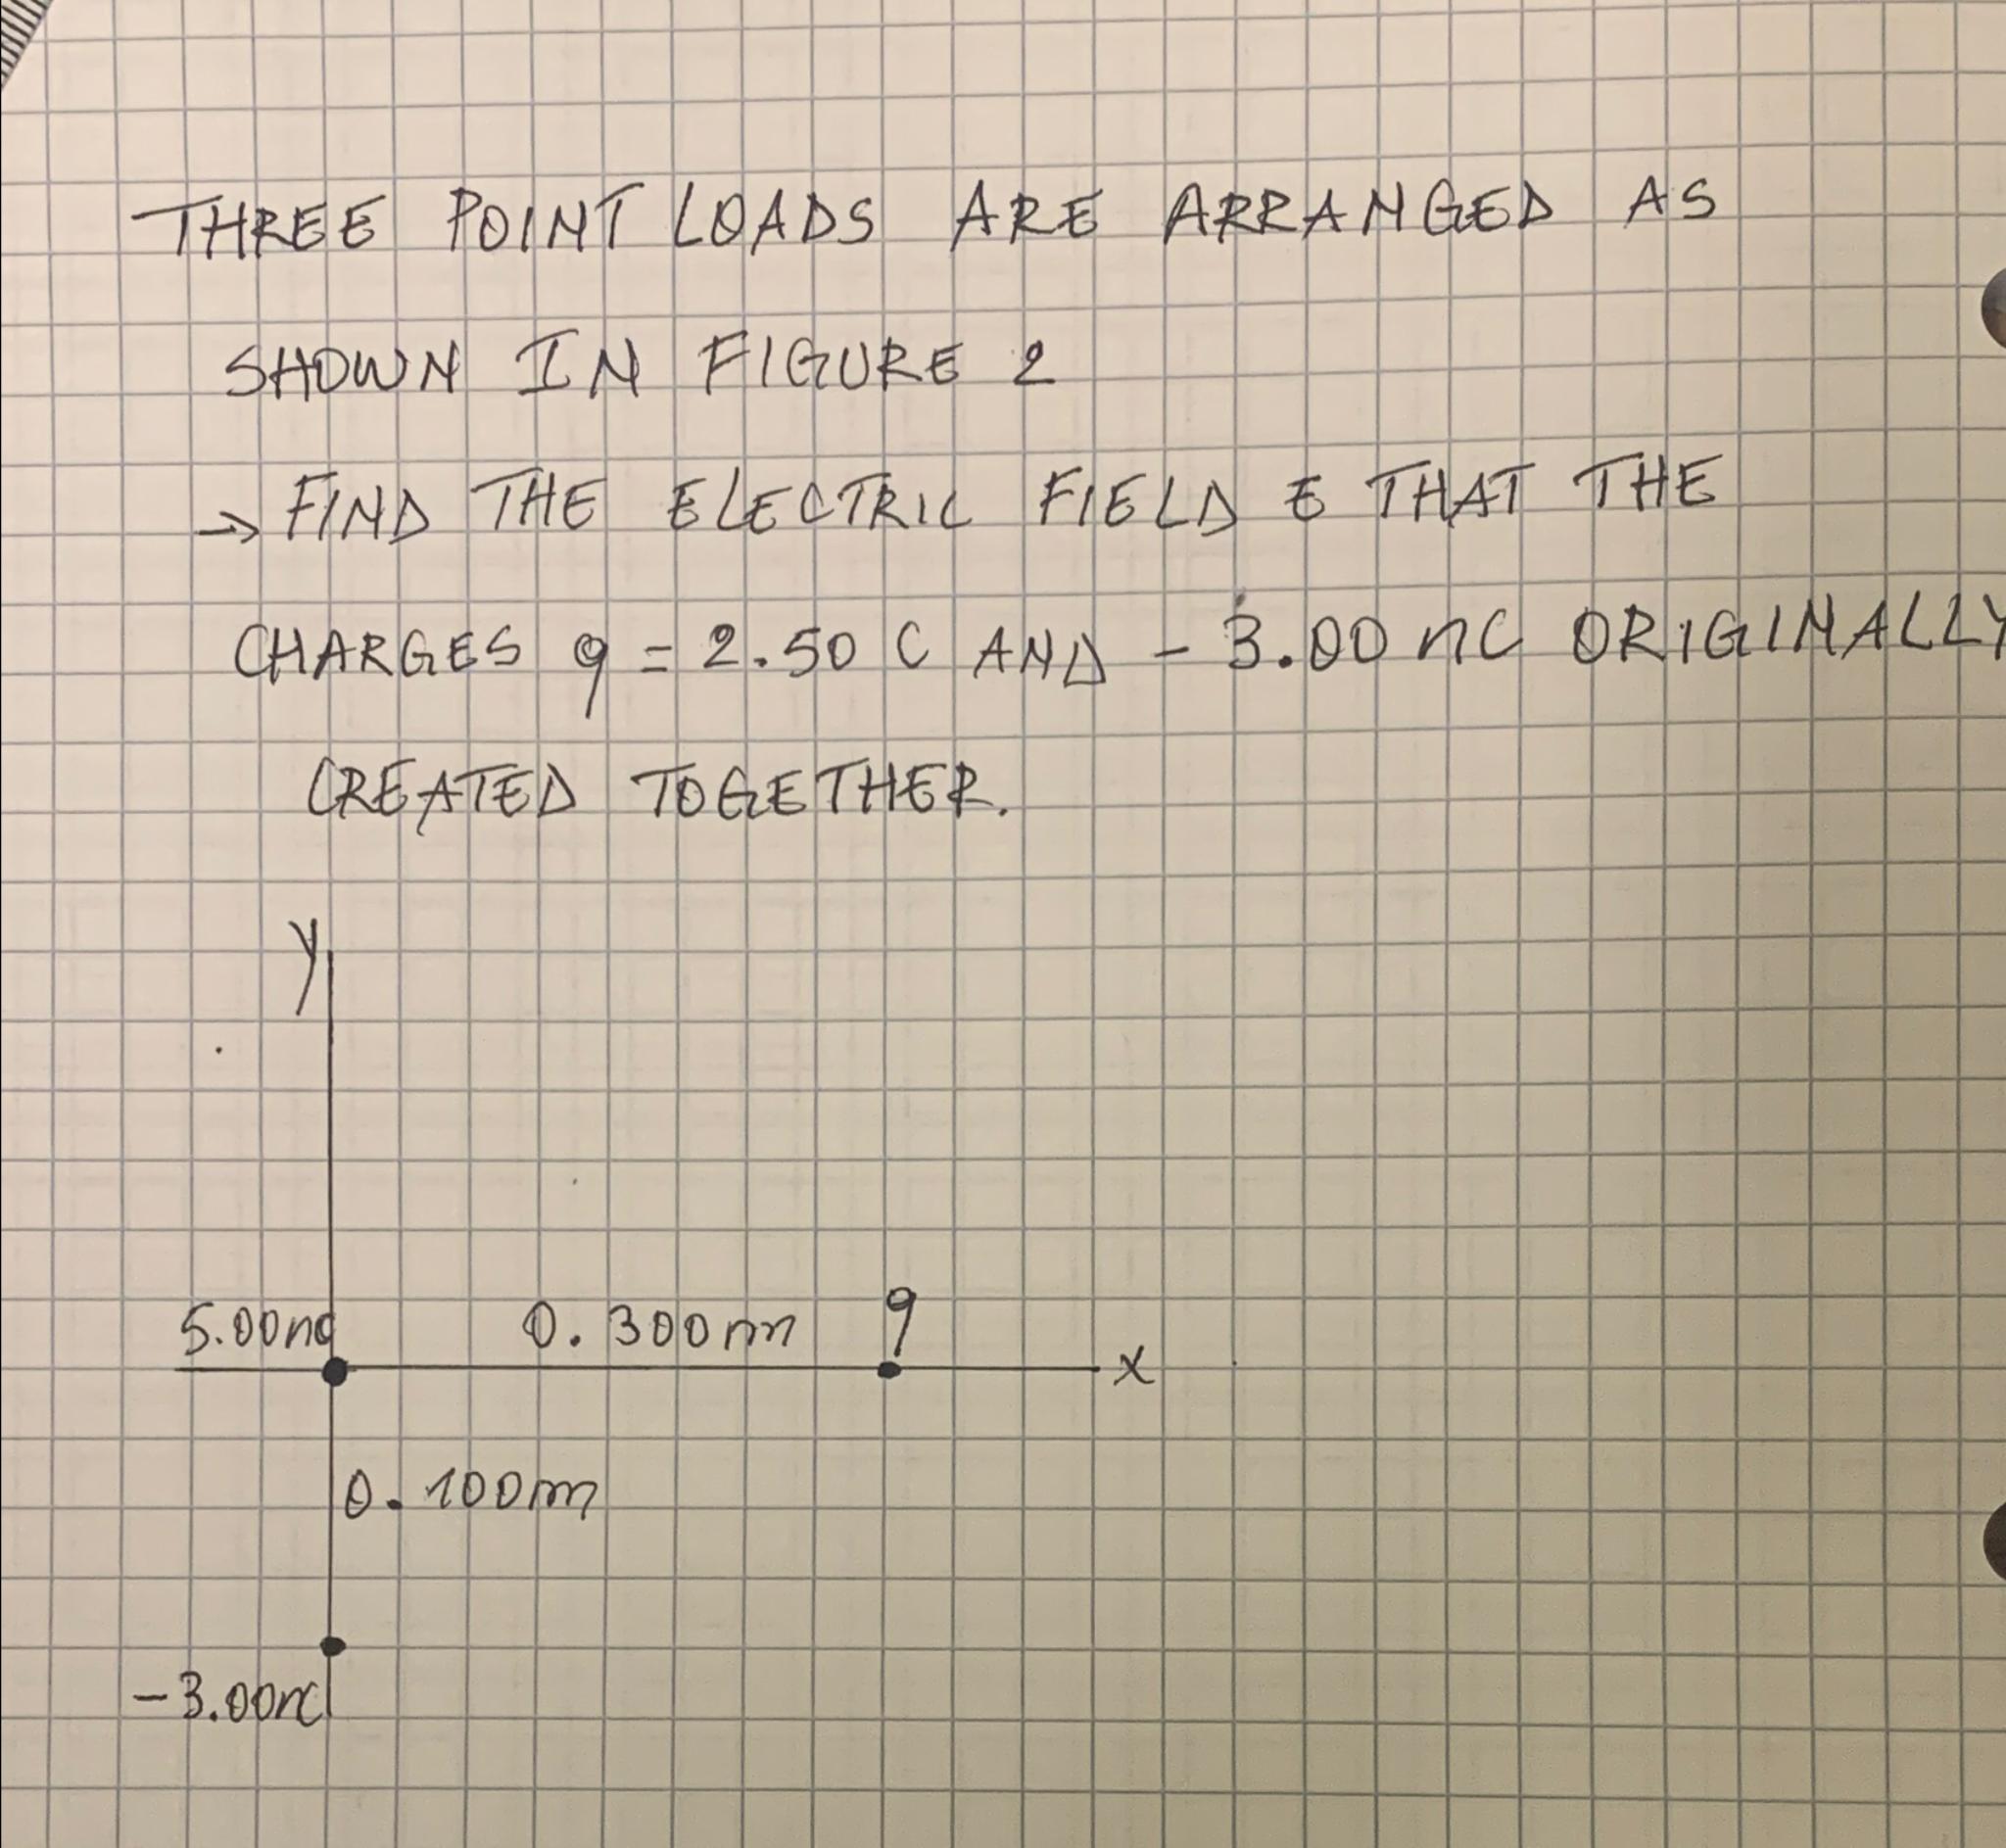 THREE POINT LOADS ARE ARRANGED AS
SHOWN IN FIGURE 2
→ FIND THE ELECTRIC FIELD E THAT THE
CHARGES q = 2.50 C AND - 3.00 nC ORIGINALLY
CREATED TOGETHER.
y
5.00nC 0.300m q
x
0.100m
-3.00nC